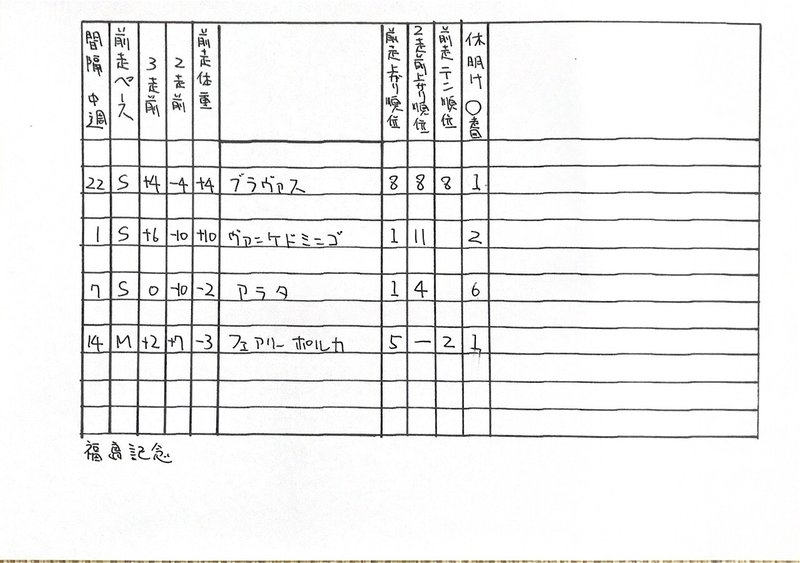 間隔 中週 前走ペース 3走前 2走前 前走体重 前走上がり順位 2走前上がり順位 前走テン順位 休明け〇番
22 S +4 -4 +4 ブラヴァス 8 8 8 1
1 S +6 -10 +10 ヴァンケドミンゴ 1 11 2
7 S 0 -10 -2 アラタ 1 4 6
14 M +2 +7 -3 フェアリーポルカ 5 — 2 1
福島記念